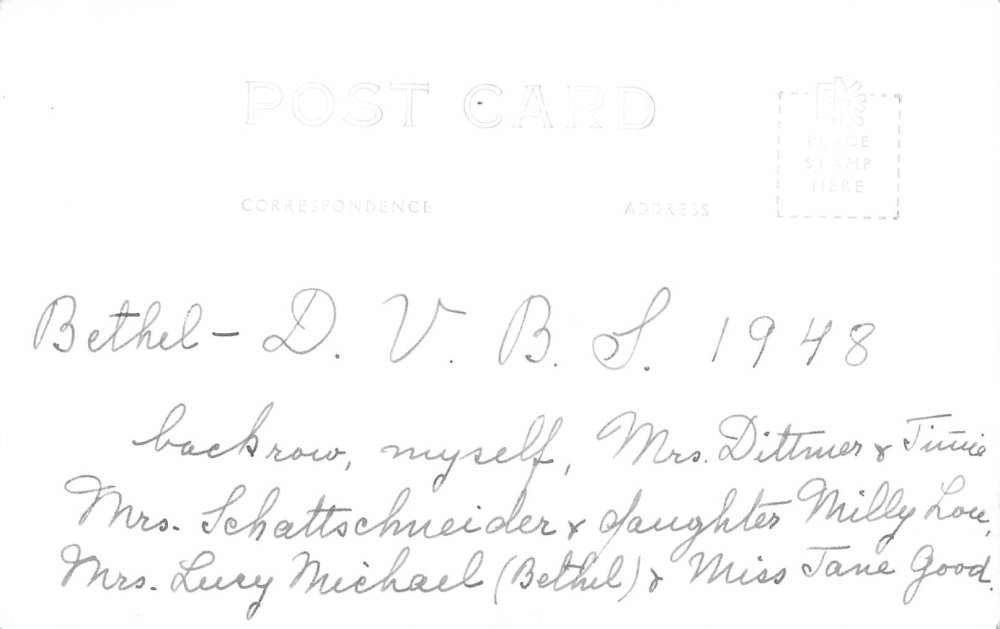 POST CARD
EKC
PLACE
STAMP
HERE
CORRESPONDENCE ADDRESS
Bethel - D. V. B. S. 1948
back row, myself, Mrs. Dittmer & Timie
Mrs. Schattschneider & daughter Milly Lou,
Mrs. Lucy Michael (Bethel) & Miss Jane Good.